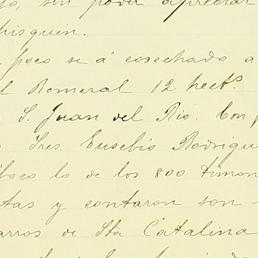 , sin poder apreciar
hisquen.
poco se á cosechado a
l Romeral 12 hects.
S. Juan del Rio. Con
Sres. Eusebio Rodrigu
lo de los 800 timon
tas y contaron son
arros de Sta Catalina